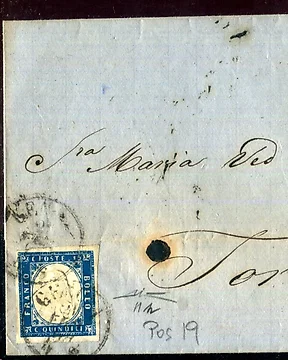 Sra Maria Ved
Tor
C POSTE 15
FRANCO
BOLLO
C QUINDICI
Pos 19